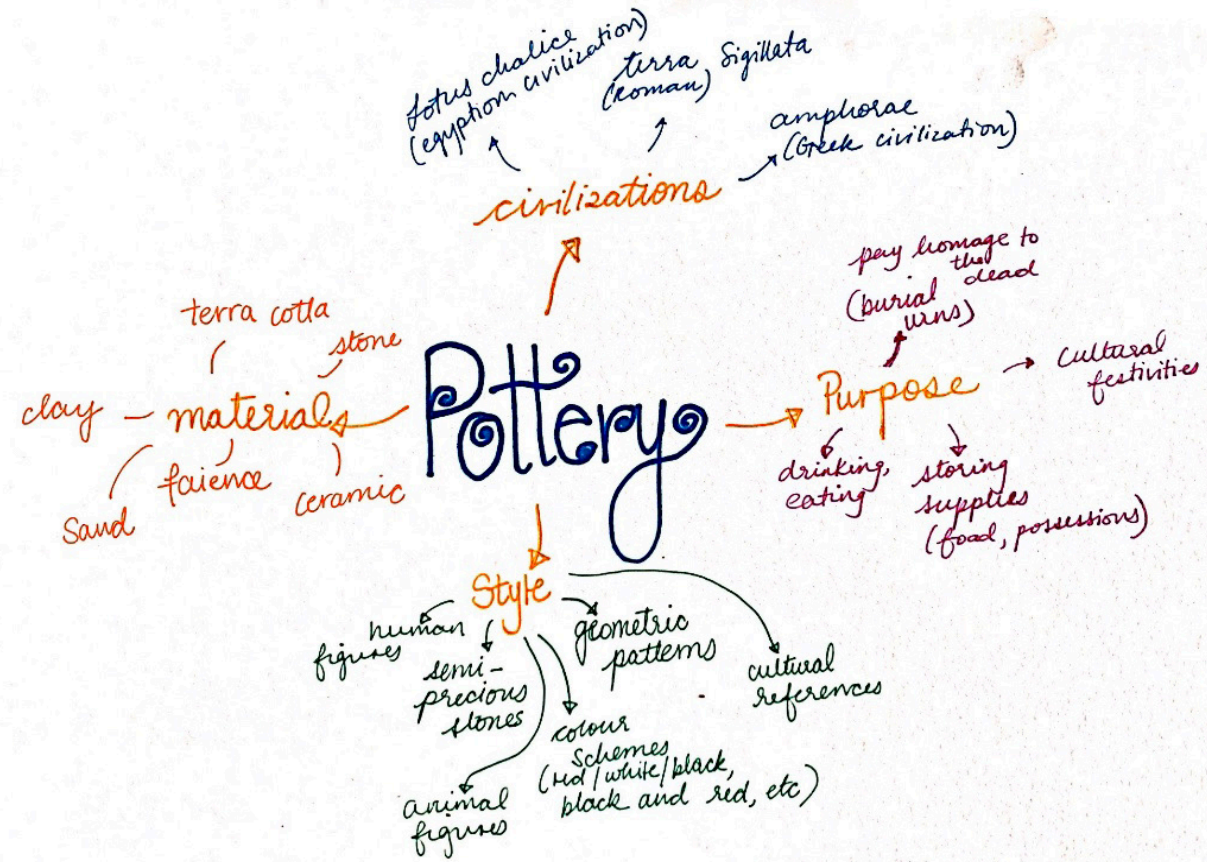 lotus chalice
(egyptiom civilization)
terra Sigillata
(roman)
amphorae
(Greek civilization)
civilizations
pay homage to
the dead
(burial
urns)
terra cotta
stone
clay
materials
faience
ceramic
Sand
Pottery
Purpose
cultural
festivities
drinking,
eating
storing
supplies
(food, possessions)
Style
human
figures
semi-
precious
stones
geometric
patterns
cultural
references
colour
schemes
(red/white/black,
black and red, etc)
animal
figures